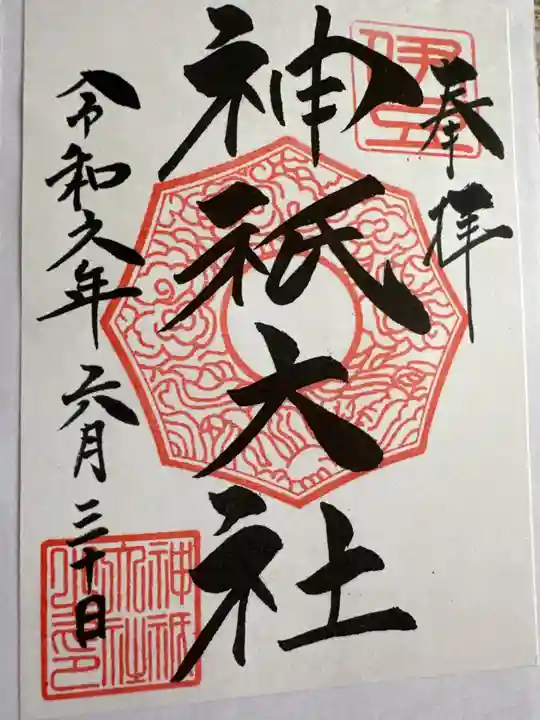 奉拝
伊豆
神祇大社
令和年六月三十日
神祇